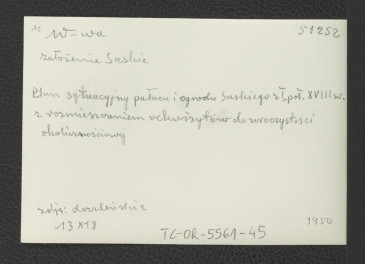 W-wa 51252
założenie Saskie
Plan sytuacyjny pałacu i ogrodu Saskiego z I poł. XVIII w.
z rozmieszczeniem rekwizytów do uroczystości
okolicznościowy
zdj: drezdeńskie
13 X 18 TC-OR-5561-45 1950